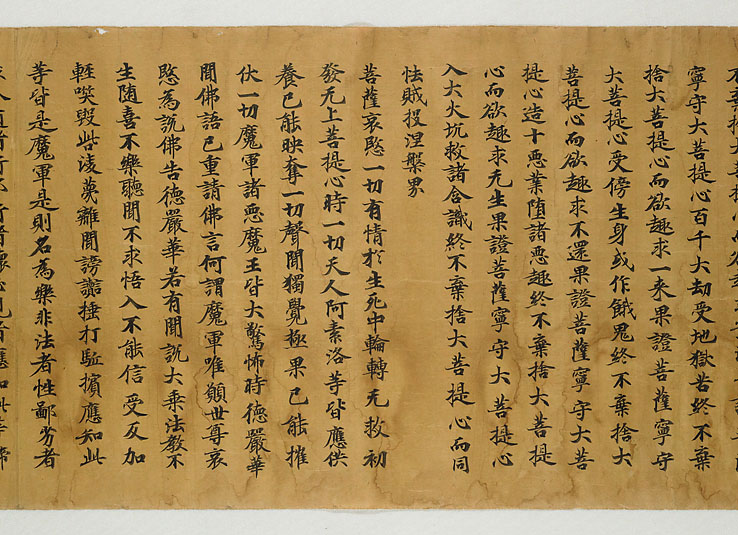 寧守大菩提心百千大劫受地獄苦終不棄
捨大菩提心而欲趣求一来果證菩薩寧守
大菩提心受傍生身或作餓鬼終不棄捨大
菩提心而欲趣求不還果證菩薩寧守大菩
提心造十惡業堕諸惡趣終不棄捨大菩提
心而欲趣求无生果證菩薩寧守大菩提心
入大火坑救諸含識終不棄捨大菩提心而同
怯賊投涅槃界
菩薩哀愍一切有情於生死中輪轉无救初
發无上菩提心時一切天人阿素洛等皆應供
養已能映奪一切聲聞獨覺極果已能摧
伏一切魔軍諸惡魔王皆大驚怖時德嚴華
聞佛語已重請佛言何謂魔軍唯願世尊哀
愍為說佛告德嚴華若有聞說大乘法教不
生随喜不樂聽聞不求悟入不能信受反加
輕唉毀呰淩蔑離間謗讟捶打駈擯應知此
等皆是魔軍是則名為樂非法者性鄙劣者